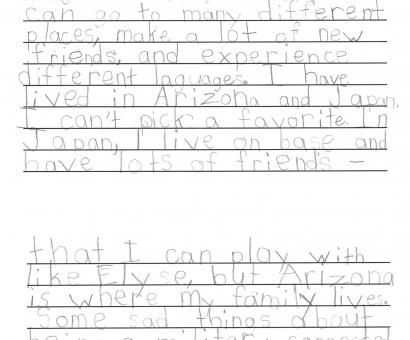 can go to many different
places, make a lot of new
friends, and experience
different laguages. I have
lived in Arizona and Japan.
I can't pick a favorite. In
Japan, I live on base and
have lots of friends -
that I can play with
like Elyse, but Arizona
is where my family lives.
Some sad things about
being a military